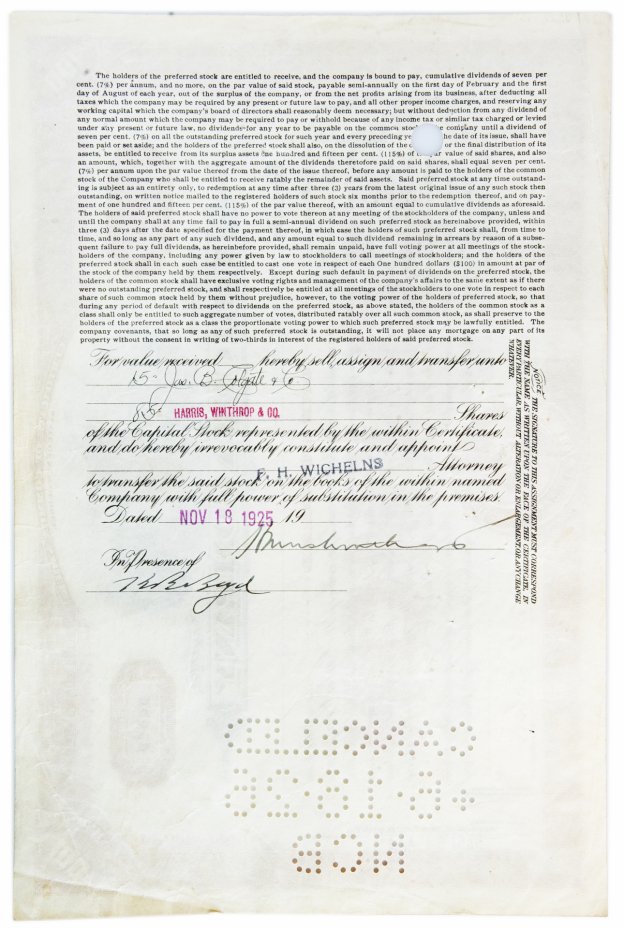 The holders of the preferred stock are entitled to receive, and the company is bound to pay, cumulative dividends of seven per
cent. (7%) per annum, and no more, on the par value of said stock, payable semi-annually on the first day of February and the first
day of August of each year, out of the surplus of the company, or from the net profits arising from its business, after deducting all
taxes which the company may be required by any present or future law to pay, and all other proper income charges, and reserving any
working capital which the company's board of directors shall reasonably deem necessary; but without deduction from any dividend of
any normal amount which the company may be required to pay or withhold because of any income tax or similar tax charged or levied
under any present or future law, no dividends for any year to be payable on the common company until a dividend of
seven per cent. (7%) on all the outstanding preferred stock for such year and every preceding the date of its issue, shall have
been paid or set aside; and the holders of the preferred stock shall also, on the dissolution of the or the final distribution of its
assets, be entitled to receive from its surplus assets one hundred and fifteen per cent. (115%) of value of said shares, and also
an amount, which, together with the aggregate amount of the dividends theretofore paid on said shares, shall equal seven per cent.
(7%) per annum upon the par value thereof from the date of the issue thereof, before any amount is paid to the holders of the common
stock of the Company who shall be entitled to receive ratably the remainder of said assets. Said preferred stock at any time outstand-
ing is subject as an entirety only, to redemption at any time after three (3) years from the latest original issue of any such stock then
outstanding, on written notice mailed to the registered holders of such stock six months prior to the redemption thereof, and on pay-
ment of one hundred and fifteen per cent. (115%) of the par value thereof, with an amount equal to cumulative dividends as aforesaid.
The holders of said preferred stock shall have no power to vote thereon at any meeting of the stockholders of the company, unless and
until the company shall at any time fail to pay in full a semi-annual dividend on such preferred stock as hereinabove provided, within
three (3) days after the date specified for the payment thereof, in which case the holders of such preferred stock shall, from time to
time, and so long as any part of any such dividend, and any amount equal to such dividend remaining in arrears by reason of a subse-
quent failure to pay full dividends, as hereinbefore provided, shall remain unpaid, have full voting power at all meetings of the stock-
holders of the company, including any power given by law to stockholders to call meetings of stockholders; and the holders of the
preferred stock shall in each such case be entitled to cast one vote in respect of each One hundred dollars ($100) in amount at par of
the stock of the company held by them respectively. Except during such default in payment of dividends on the preferred stock, the
holders of the common stock shall have exclusive voting rights and management of the company's affairs to the same extent as if there
were no outstanding preferred stock, and shall respectively be entitled at all meetings of the stockholders to one vote in respect to each
share of such common stock held by them without prejudice, however, to the voting power of the holders of preferred stock, so that
during any period of default with respect to dividends on the preferred stock, as above stated, the holders of the common stock as a
class shall only be entitled to such aggregate number of votes, distributed ratably over all such common stock, as shall preserve to the
holders of the preferred stock as a class the proportionate voting power to which such preferred stock may be lawfully entitled. The
company covenants, that so long as any of such preferred stock is outstanding, it will not place any mortgage on any part of its
property without the consent in writing of two-thirds in interest of the registered holders of said preferred stock.
For value received hereby sell, assign and transfer unto
Jas. B. Colgate & Co
HARRIS, WINTHROP & CO. Shares
of the Capital Stock represented by the within Certificate,
and do hereby irrevocably constitute and appoint
F. H. WICHELNS Attorney
to transfer the said stock on the books of the within named
Company with full power of substitution in the premises.
Dated NOV 18 1925 19
In Presence of
NOTICE THE SIGNATURE TO THIS ASSIGNMENT MUST CORRESPOND
WITH THE NAME AS WRITTEN UPON THE FACE OF THE CERTIFICATE, IN
EVERY PARTICULAR, WITHOUT ALTERATION OR ENLARGEMENT, OR ANY CHANGE
WHATEVER.
CANCELLED